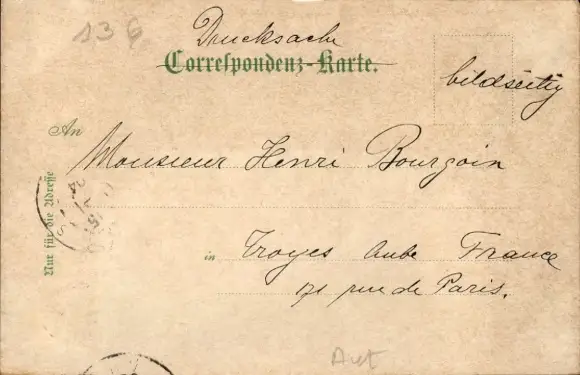 136
Drucksache
Correspondenz-Karte.
bildseitig
An
Monsieur Henri Bourgoin
Nur für die Adresse
in
Troyes Aube France
171 rue de Paris.